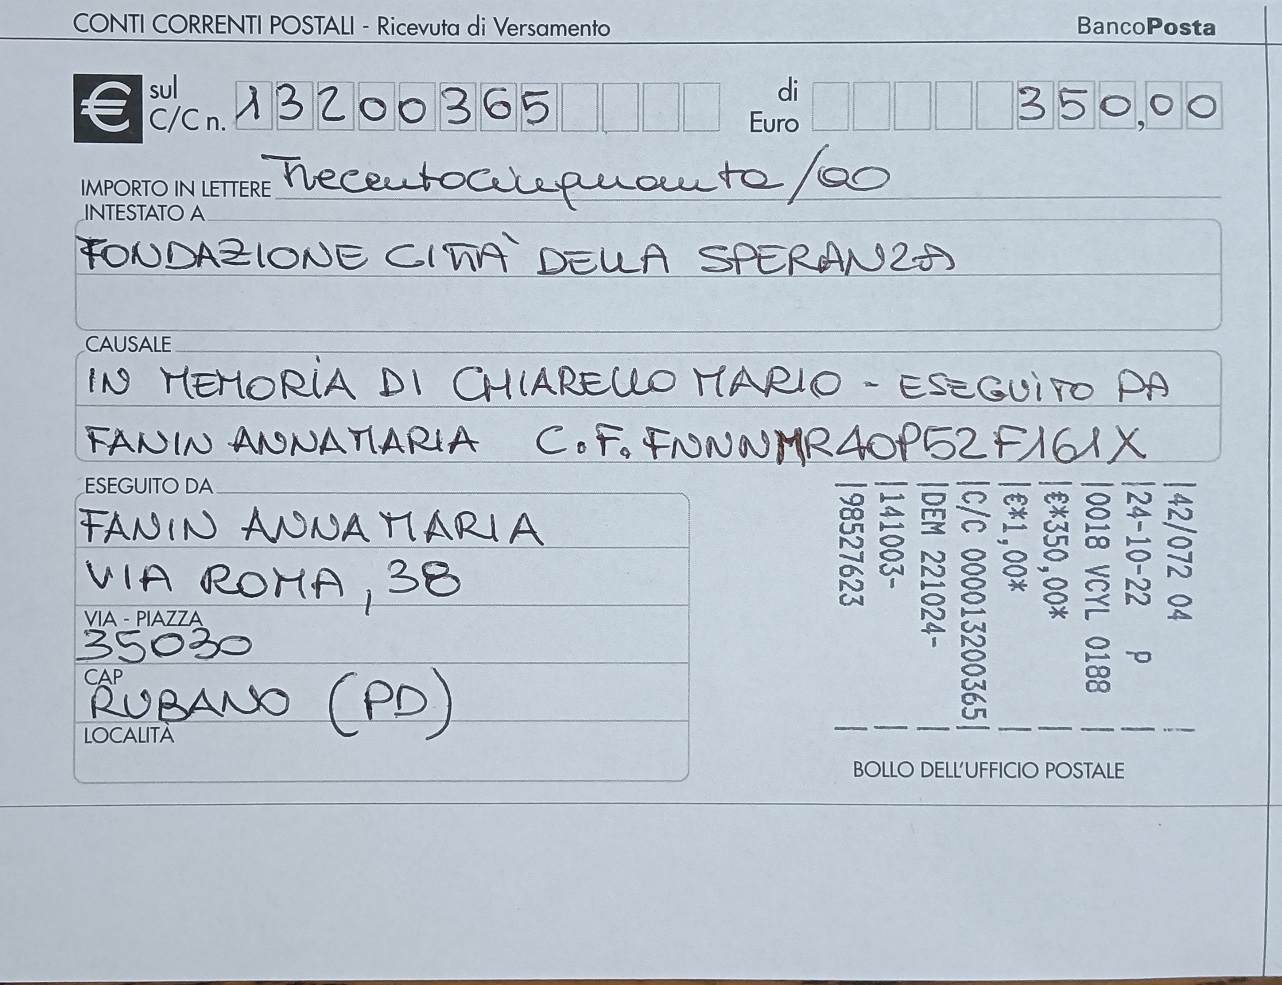 CONTI CORRENTI POSTALI - Ricevuta di Versamento BancoPosta
€ sul C/C n. 13200365 di Euro 350,00
IMPORTO IN LETTERE Trecentocinquanta/00
INTESTATO A
FONDAZIONE CITTÀ DELLA SPERANZA
CAUSALE
IN MEMORIA DI CHIARELLO MARIO - ESEGUITO DA
FANIN ANNAMARIA C.F. FNNNMR40P52F161X
ESEGUITO DA
FANIN ANNAMARIA
VIA ROMA, 38
VIA - PIAZZA
35030
CAP
RUBANO (PD)
LOCALITÀ
42/072 04
24-10-22 P
0018 VCYL 0188
€*350,00*
€*1,00*
C/C 000013200365
DEM 221024-
141003-
98527623
BOLLO DELL'UFFICIO POSTALE